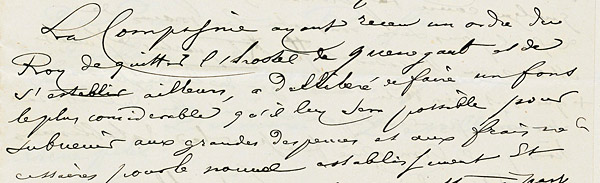 La Compagnie ayant receu un ordre du
Roy de quitter l'hostel de Quenegaut et de
s'establir ailleurs, a delliberé de faire un fons
le plus considerable qu'il luy sera possible pour
subuenir aux grandes despences et aux frais ne-
cessaires pour le nouuel establissement Et